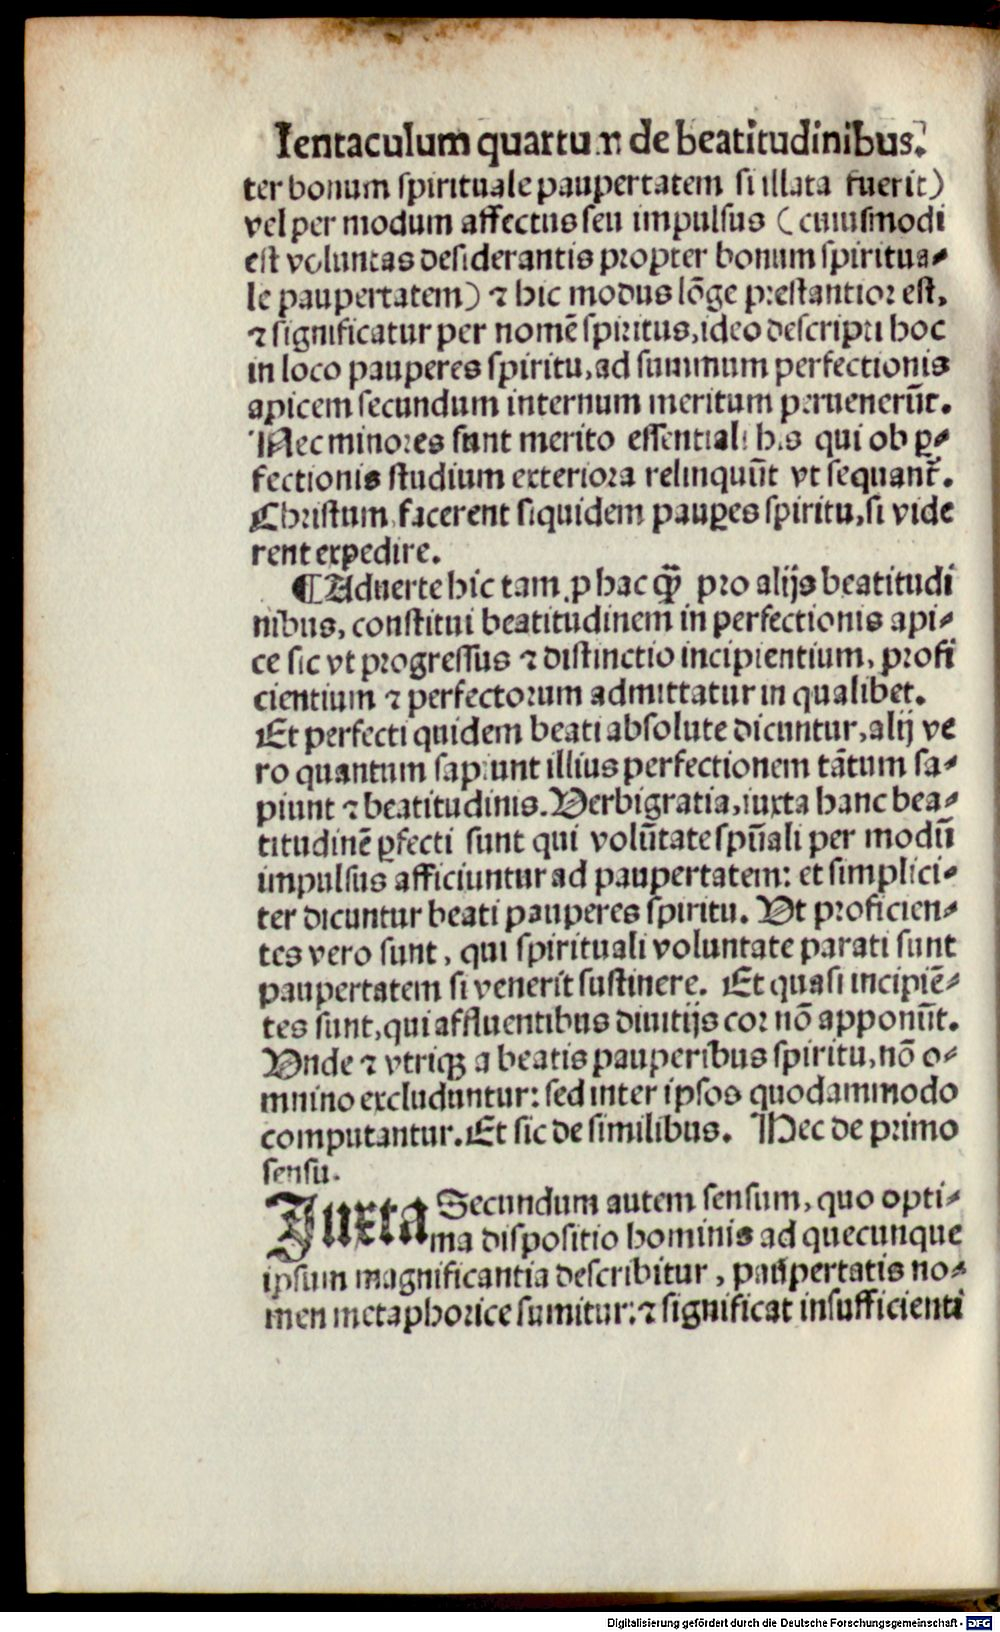 Ientaculum quartum de beatitudinibus.
ter bonum spirituale paupertatem si illata fuerit)
vel per modum affectus seu impulsus (cuiusmodi
est voluntas desiderantis propter bonum spiritua⸗
le paupertatem) ⁊ hic modus lõge prestantior est,
⁊ significatur per nomẽ spiritus, ideo descripti hoc
in loco pauperes spiritu, ad summum perfectionis
apicem secundum internum meritum peruenerũt.
Nec minores sunt merito essentiali his qui ob ꝑ⸗
fectionis studium exteriora relinquũt vt sequant᷑.
Christum, facerent siquidem pauꝑes spiritu, si vide
rent expedire.
¶ Aduerte hic tam ꝓ hac q̃ȝ pro alijs beatitudi
nibus, constitui beatitudinem in perfectionis api⸗
ce sic vt progressus ⁊ distinctio incipientium, profi
cientium ⁊ perfectorum admittatur in qualibet.
Et perfecti quidem beati absolute dicuntur, alij ve
ro quantum sapiunt illius perfectionem tãtum sa⸗
piunt ⁊ beatitudinis. Verbigratia, iuxta hanc bea⸗
titudinẽ ꝑfecti sunt qui volũtate spũali per modũ
impulsus afficiuntur ad paupertatem: et simplici⸗
ter dicuntur beati pauperes spiritu. Vt proficien⸗
tes vero sunt, qui spirituali voluntate parati sunt
paupertatem si venerit sustinere. Et quasi incipiẽ⸗
tes sunt, qui affluentibus diuitijs cor nõ apponũt.
Vnde ⁊ vtriqȝ a beatis pauperibus spiritu, nõ o⸗
mnino excluduntur: sed inter ipsos quodammodo
computantur. Et sic de similibus. Hec de primo
sensu.
Iuxta Secundum autem sensum, quo opti⸗
ma dispositio hominis ad quecunque
ipsum magnificantia describitur, paupertatis no⸗
men metaphorice sumitur: ⁊ significat insufficienti
Digitalisierung gefördert durch die Deutsche Forschungsgemeinschaft - DFG